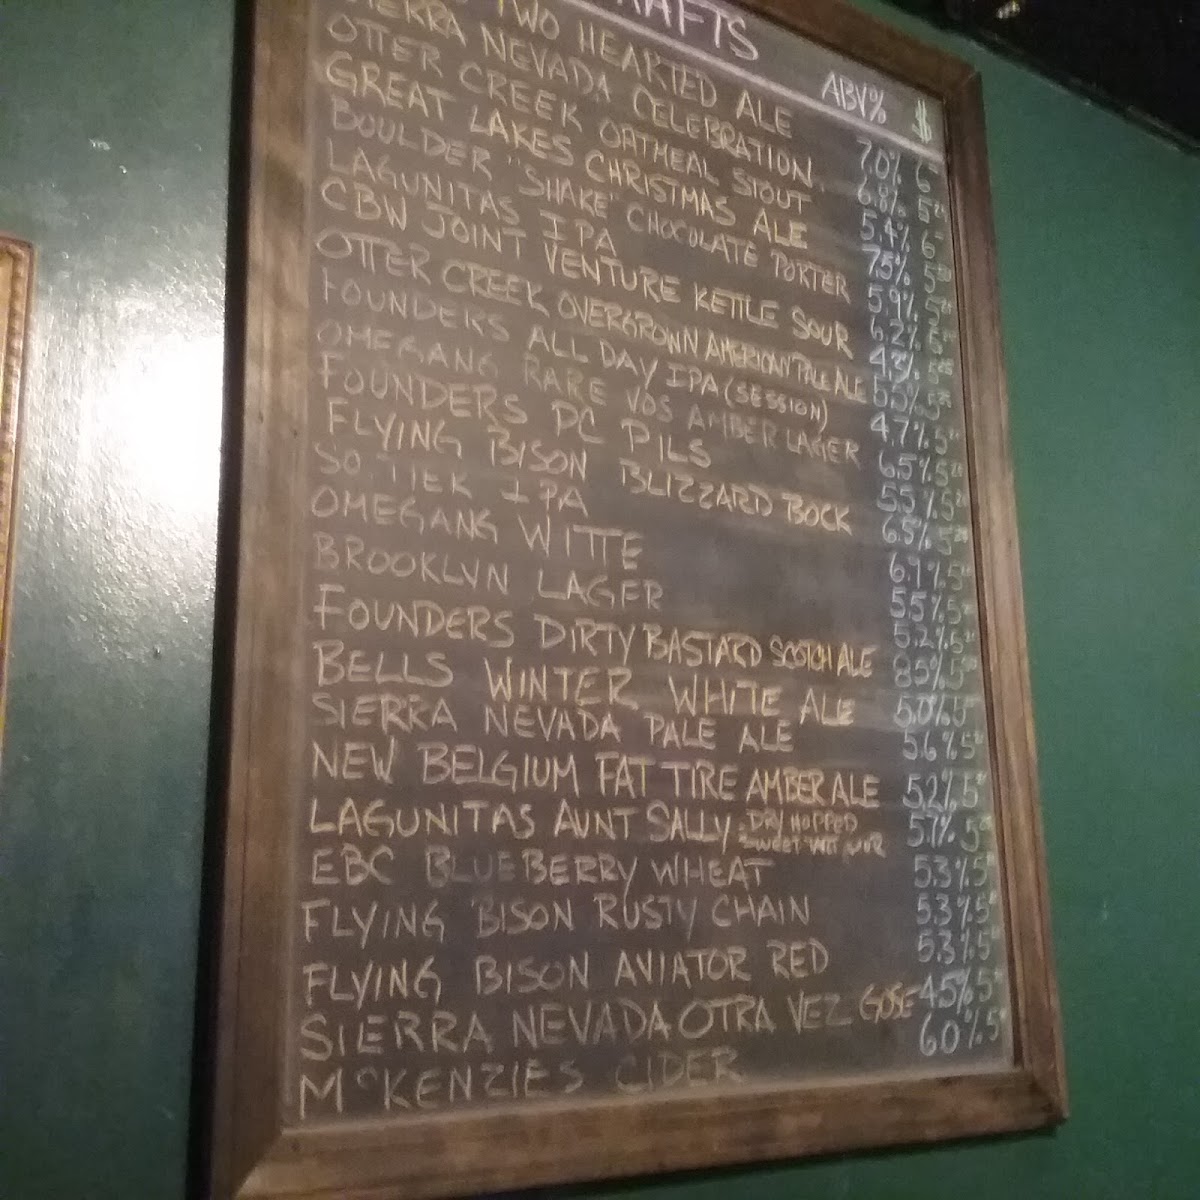 RAFTS ABV% $
TWO HEARTED ALE 7.0% 6
SIERRA NEVADA CELEBRATION 6.8% 5
OTTER CREEK OATMEAL STOUT 5.4% 6
GREAT LAKES CHRISTMAS ALE 7.5% 5
BOULDER "SHAKE" CHOCOLATE PORTER 5.9% 5
LAGUNITAS IPA 6.2% 5
CBW JOINT VENTURE KETTLE SOUR 4.3% 5
OTTER CREEK OVERGROWN AMERICAN PALE ALE 5.5% 5
FOUNDERS ALL DAY IPA (SESSION) 4.7% 5
OMEGANG RARE VOS AMBER LAGER 6.5% 5
FOUNDERS PC PILS 5.5% 5
FLYING BISON BLIZZARD BOCK 6.5% 5
SO TIER IPA 6.1% 5
OMEGANG WITTE 5.5% 5
BROOKLYN LAGER 5.2% 5
FOUNDERS DIRTY BASTARD SCOTCH ALE 8.5% 5
BELLS WINTER WHITE ALE 5.0% 5
SIERRA NEVADA PALE ALE 5.6% 5
NEW BELGIUM FAT TIRE AMBER ALE 5.2% 5
LAGUNITAS AUNT SALLY - DRY HOPPED SWEET TART SOUR 5.7% 5
EBC BLUEBERRY WHEAT 5.3% 5
FLYING BISON RUSTY CHAIN 5.3% 5
FLYING BISON AVIATOR RED 5.3% 5
SIERRA NEVADA OTRA VEZ GOSE 4.5% 5
MCKENZIES CIDER 6.0% 5